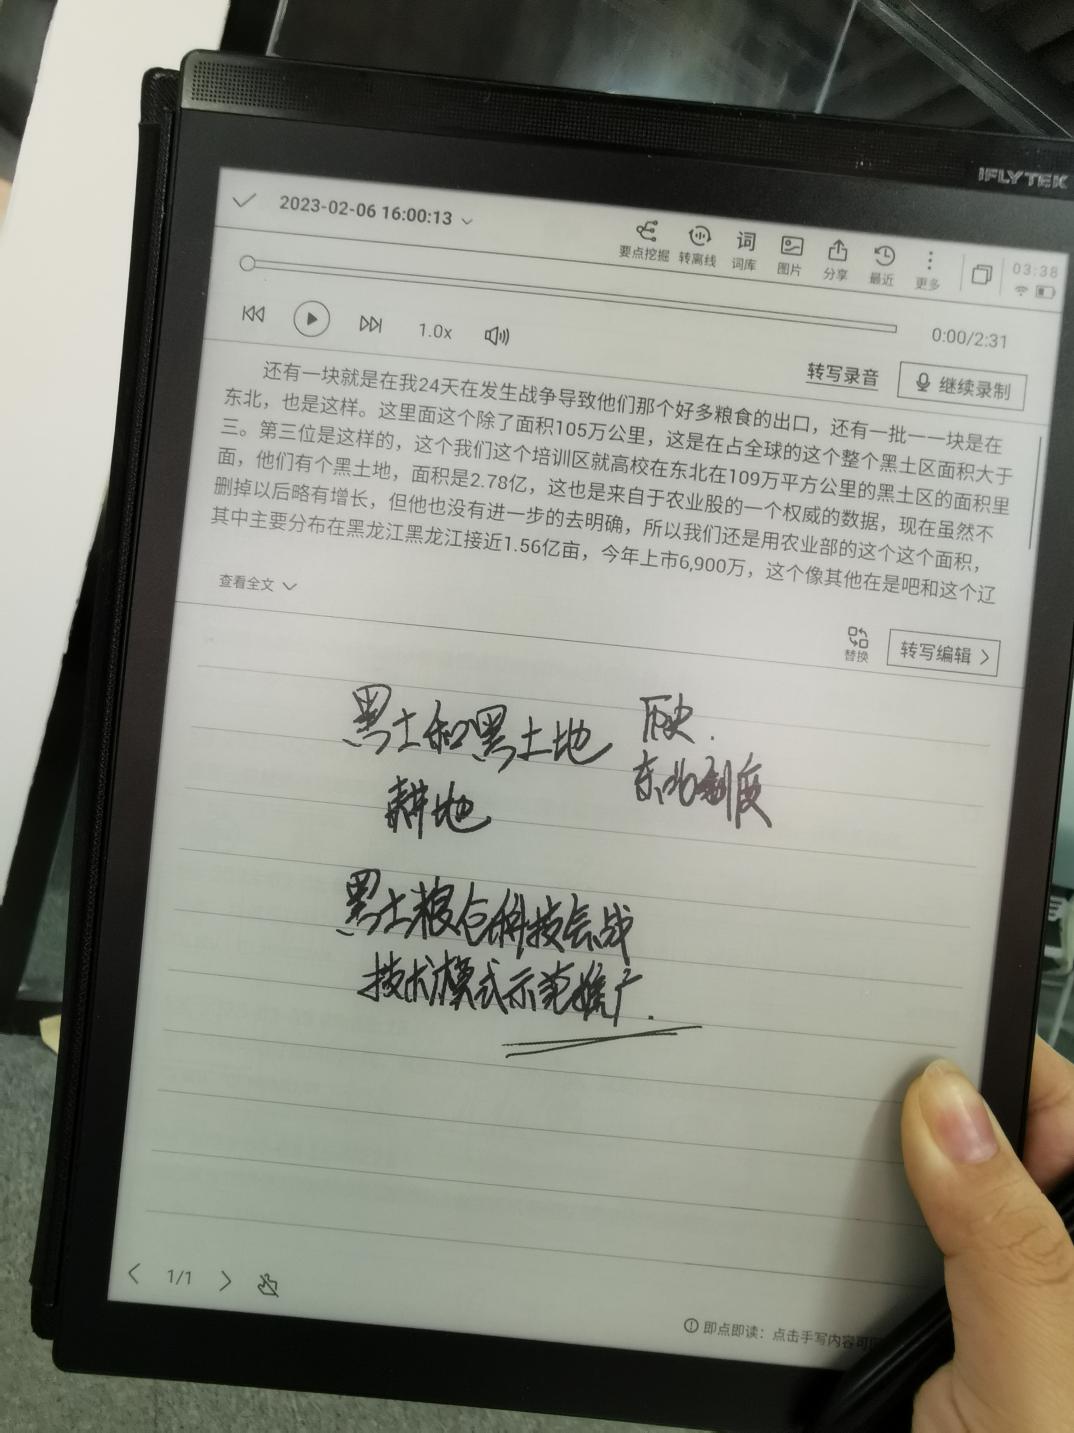 IFLYTEK
2023-02-06 16:00:13
要点挖掘 转离线 词库 图片 分享 最近 更多
03:38
1.0x
0:00/2:31
转写录音 继续录制
还有一块就是在我24天在发生战争导致他们那个好多粮食的出口，还有一批一一块是在
东北，也是这样。这里面这个除了面积105万公里，这是在占全球的这个整个黑土区面积大于
三。第三位是这样的，这个我们这个培训区就高校在东北在109万平方公里的黑土区的面积里
面，他们有个黑土地，面积是2.78亿，这也是来自于农业股的一个权威的数据，现在虽然不
删掉以后略有增长，但他也没有进一步的去明确，所以我们还是用农业部的这个这个面积，
其中主要分布在黑龙江黑龙江接近1.56亿亩，今年上市6,900万，这个像其他在是吧和这个辽
查看全文
替换 转写编辑
黑土和黑土地 历史.
耕地 东北制度
黑土粮仓科技会战
技术模式示范推广.
1/1
即点即读：点击手写内容可